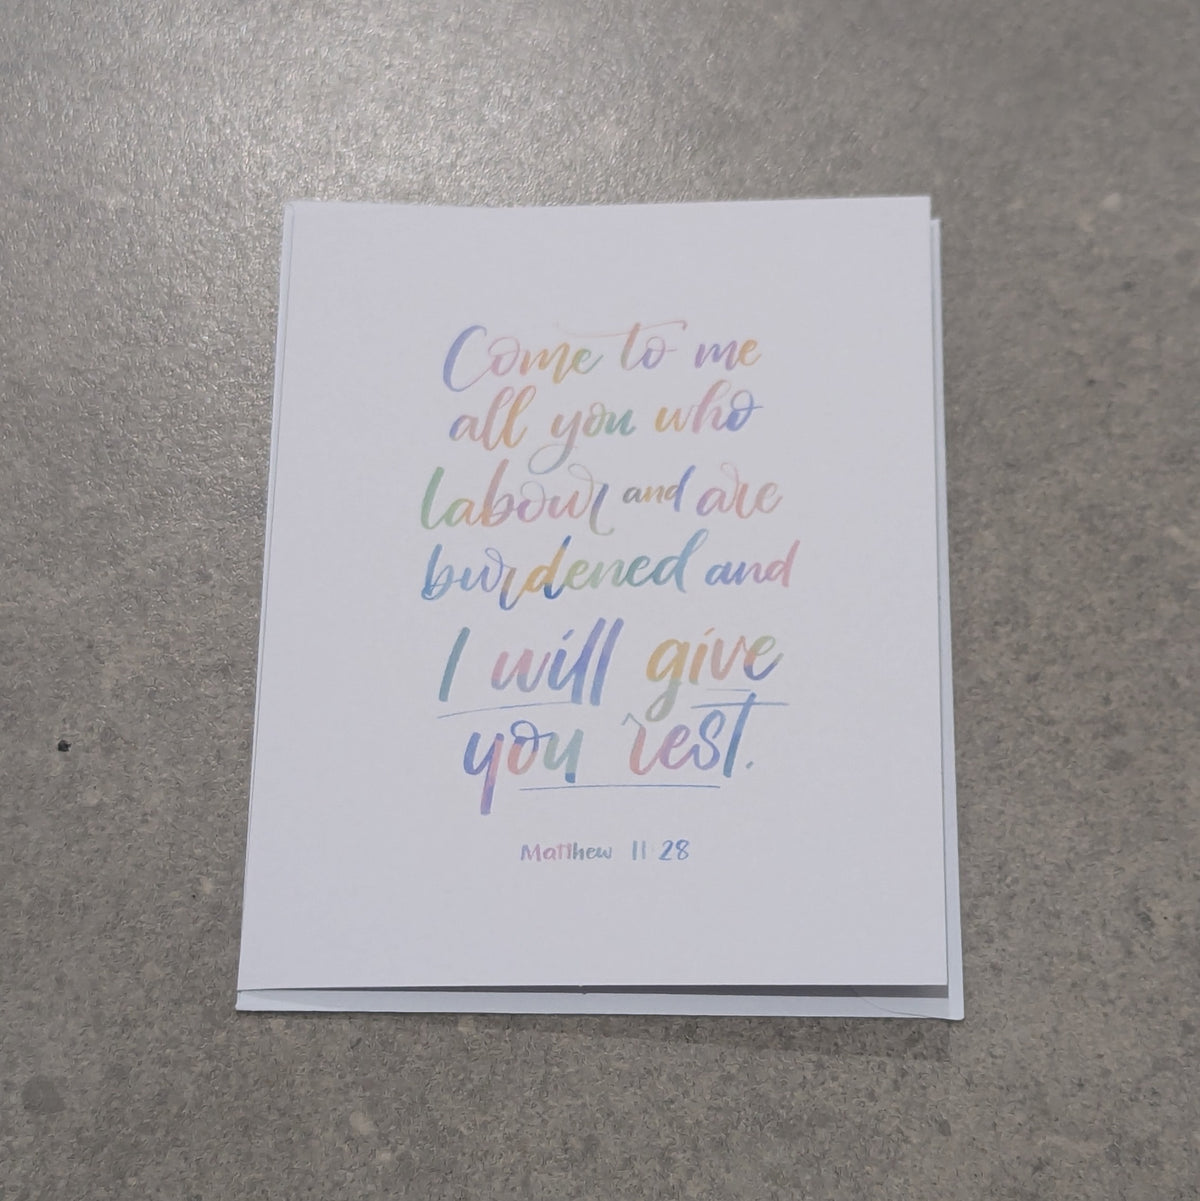 Come to me
all you who
labour and are
burdened and
I will give
you rest.
Matthew 11:28